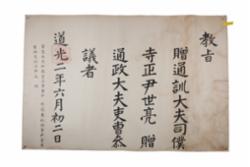 教旨
贈通訓大夫司僕
寺正尹世亮 贈
通政大夫吏曹叅
議者
道光二年六月初二日